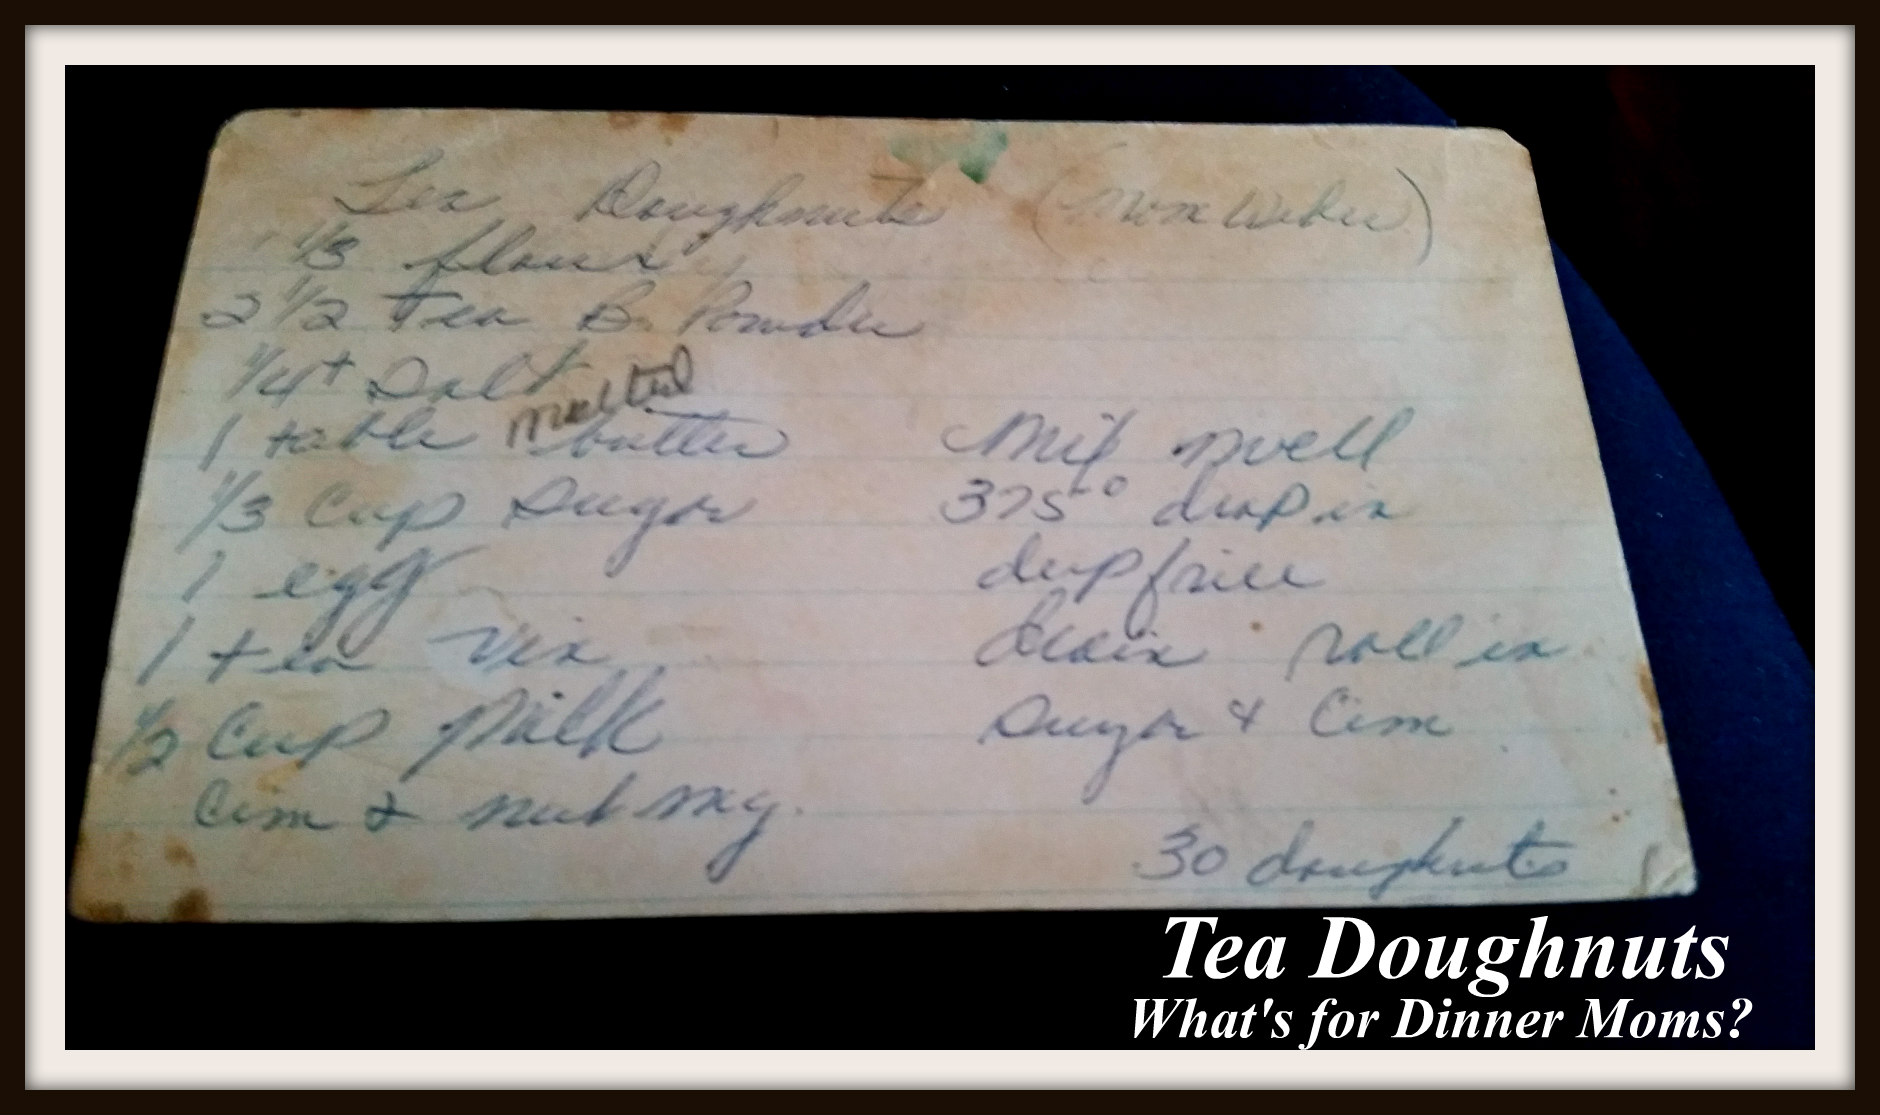 Tea Doughnuts (Mom Weber)
1 1/3 flour
2 1/2 tea B. Powder
1/4 t Salt
1 table melted butter
1/3 Cup Sugar
1 egg
1 tea Vin
1/2 Cup Milk
Cim & nutmeg.
Mix well
375° drop in
deep frier
drain roll in
Sugar & Cim
30 doughnuts
Tea Doughnuts
What's for Dinner Moms?